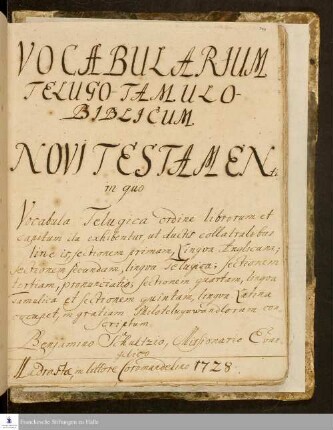 VOCABULARIUM
TELUGO-TAMULO-
BIBLICUM
NOVI TESTAMEN.
in quo
Vocabula Telugica ordine librorum et
Capitum ita exhibentur, ut ductis collateralibus
lineis, sectionem primam, Lingva Anglicana;
sectionem secundam, lingva Telugica; sectionem
tertiam, pronunciatio; sectionem quartam, lingva
Tamulica et sectionem quintam, lingva Latina
occupet, in gratiam Philotelugorum
scriptum.
Benjamino Schultzio, Missionario Evan-
gelico
Madrasta, in littore Coromandelino 1728.
Franckesche Stiftungen zu Halle